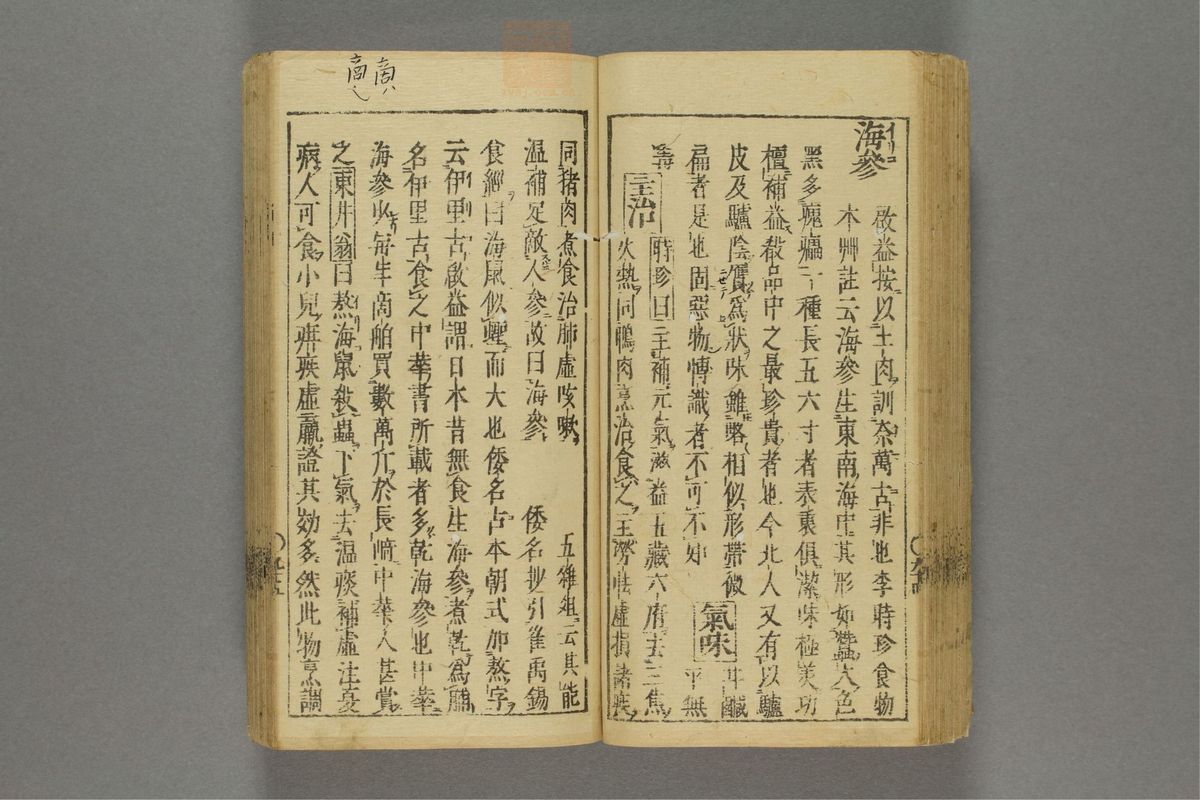 海參
啟益按以土肉訓奈萬古非也李時珍食物
本艸註云海參生東南海中其形如蠶大色
黑多瘣㿔一種長五六寸者表裏俱潔味極美功
檀補益殽品中之最珍貴者也今北人又有以驢
皮及驢陰贋為狀味雖略相似形帶微
扁者是也固惡物愽識者不可不知 氣味 甘鹹平無
毒 主治 時珍曰主補元氣滋益五藏六府去三焦
火熱同鴨肉烹治食之主勞怯虛損諸疾
同猪肉煮食治肺虛咳嗽 五雜俎云其能
温補足敵人參故曰海參 倭名抄引崔禹錫
食經曰海鼠似蛭而大也倭名占本朝式加熬字
云伊里古啟益謂日本昔無食生海參煮乾為腊
名伊里古食之中華書所載者多乾海參也中華
海參少每年商舶買數萬斤於長﨑中華人甚賞
之東井翁曰熬海鼠殺蟲下氣去温痰補虛注憂
病人可食小兒疳疾虛羸證其効多然此物烹調
商